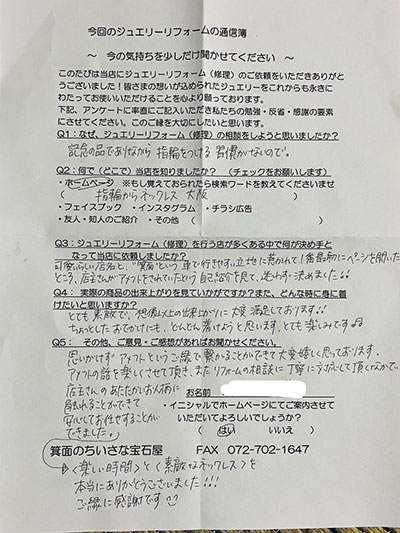 今回のジュエリーリフォームの通信簿
～ 今の気持ちを少しだけ聞かせてください ～
このたびは当店にジュエリーリフォーム（修理）のご依頼をいただきありがと
うございました！皆さまの想いが込められたジュエリーをこれからも永きに
わたってお使いいただけることを心より願っております。
下記、アンケートに率直にご記入いただき私たちの勉強・反省・感謝の要素
にさせてください。このご縁を大切にしたいと思います。
Q1：なぜ、ジュエリーリフォーム（修理）の相談をしようと思いましたか？
記念の品でありながら 指輪をつける 習慣がないので。
Q2：何で（どこで）当店を知りましたか？ （チェックをお願いします）
・ホームページ ※もし覚えておられたら検索ワードを教えてくださいませ
（ 指輪からネックレス 大阪 ）
・フェイスブック ・インスタグラム ・チラシ広告
・友人・知人のご紹介 ・その他（ ）
Q3：ジュエリーリフォーム（修理）を行う店が多くある中で何が決め手と
なって当店に依頼しましたか？
可愛らしい店名と、"箕面"という車で行きやすい立地に惹かれて1番最初にページを開いた
ところ、店主さんがアメフトをされていたという自己紹介を見て、迷わず決めました!!
Q4： 実際の商品の出来上がりを見ていかがですか？また、どんな時に身に着
けたいと思いますか？
とても素敵で、想像以上の出来上がりに大変満足しております!!
ちょっとしたおでかけにも、どんどん着けようと思います、とても楽しみです♪
Q5： その他、ご意見・ご感想があればお聞かせください。
思いがけず アメフトというご縁で繋がることができて大変嬉しく思っております。
アメフトの話を楽しくさせて頂き、また リフォームの相談に丁寧に対応して頂くなかで、
店主さんのあたたかいお人柄に
触れることができて
安心してお任せすることが
できました。
お名前
・イニシャルでホームページにてご案内させて
いただいてよろしいでしょうか？
（ はい いいえ ）
箕面のちいさな宝石屋 FAX 072-702-1647
〈楽しい時間〉と〈素敵なネックレス〉を
本当にありがとうございました!!!
ご縁に感謝です